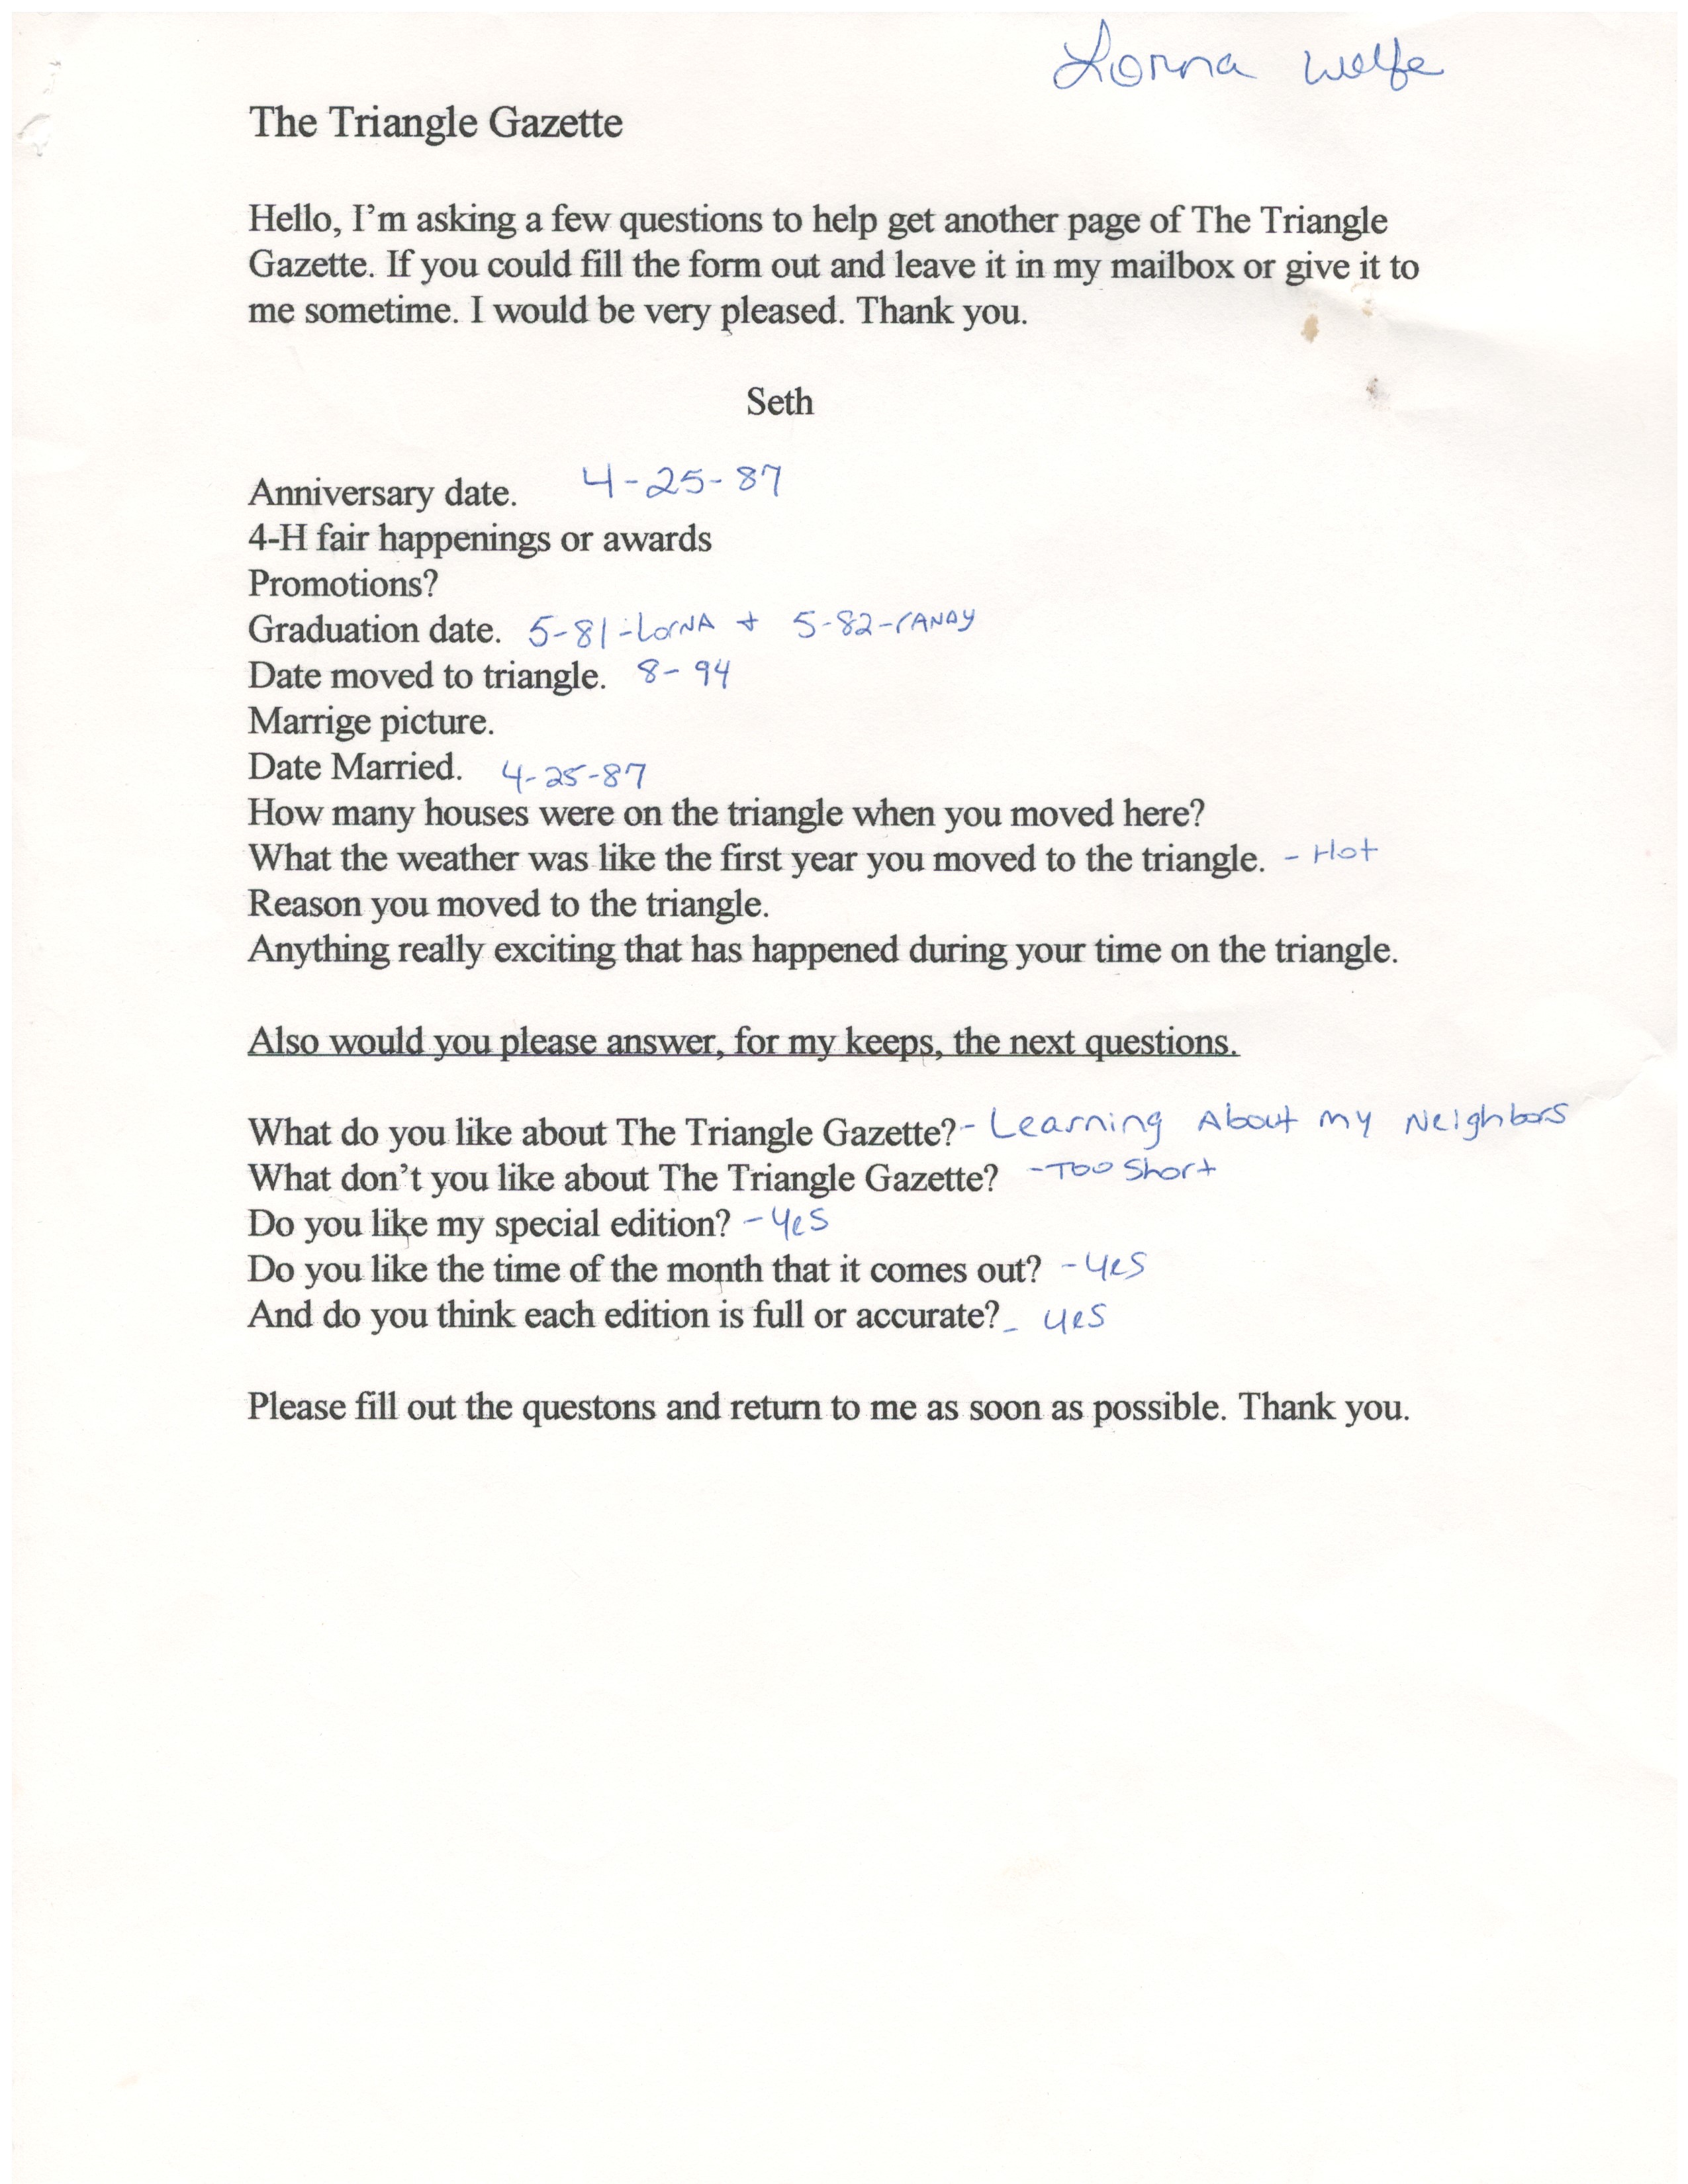 Lorna Wolfe
The Triangle Gazette
Hello, I'm asking a few questions to help get another page of The Triangle
Gazette. If you could fill the form out and leave it in my mailbox or give it to
me sometime. I would be very pleased. Thank you.
Seth
Anniversary date. 4-25-87
4-H fair happenings or awards
Promotions?
Graduation date. 5-81-LorNA + 5-82-rANDY
Date moved to triangle. 8-94
Marrige picture.
Date Married. 4-25-87
How many houses were on the triangle when you moved here?
What the weather was like the first year you moved to the triangle. - Hot
Reason you moved to the triangle.
Anything really exciting that has happened during your time on the triangle.
Also would you please answer, for my keeps, the next questions.
What do you like about The Triangle Gazette? - Learning About my Neighbors
What don't you like about The Triangle Gazette? - Too Short
Do you like my special edition? - Yes
Do you like the time of the month that it comes out? - Yes
And do you think each edition is full or accurate? - yes
Please fill out the questons and return to me as soon as possible. Thank you.